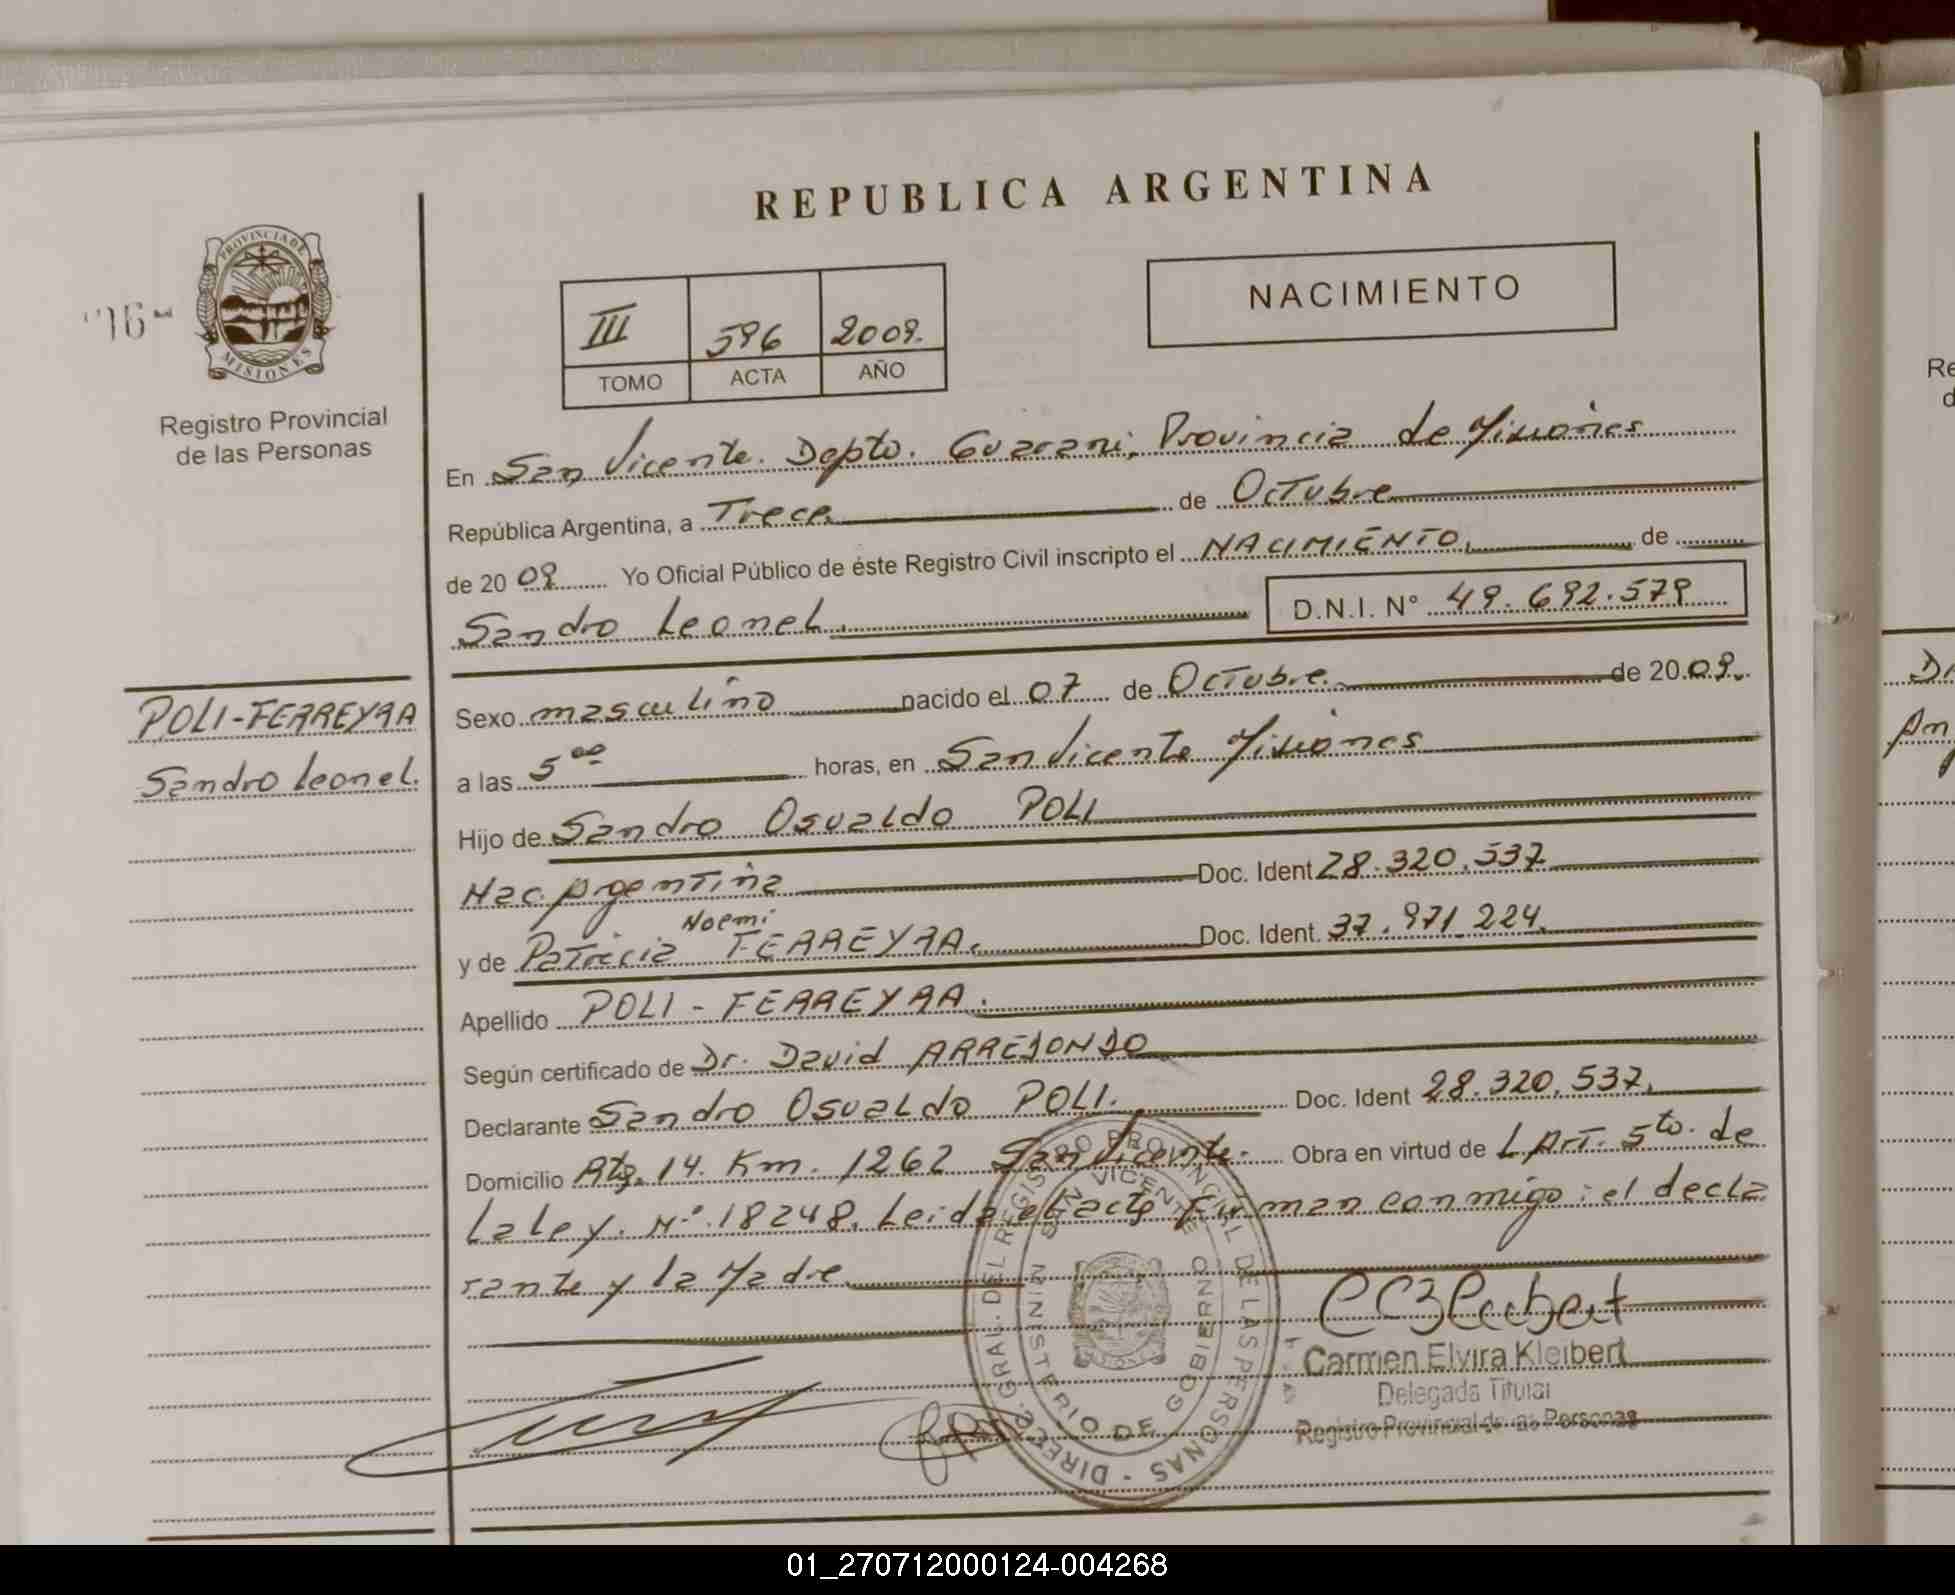 REPUBLICA ARGENTINA
PROVINCIA DE
MISIONES
Registro Provincial
de las Personas
III 596 2009.
TOMO ACTA AÑO
NACIMIENTO
En San Vicente. Depto. Guarani, Provincia de Misiones
República Argentina, a Trece de Octubre
de 20 09 Yo Oficial Público de éste Registro Civil inscripto el NACIMIENTO de
Sandro Leonel. D.N.I. N° 49.692.579
POLI-FERREYRA
Sandro Leonel.
Sexo masculino nacido el 07 de Octubre. de 20 09.
a las 5 00 horas, en San Vicente Misiones
Hijo de Sandro Osvaldo POLI
Nac. Argentina Doc. Ident 28.320.537
Noemi
y de Patricia FERREYRA. Doc. Ident. 37.971.224.
Apellido POLI - FERREYRA.
Según certificado de Dr. David ARREDONDO
Declarante Sandro Osvaldo POLI. Doc. Ident 28.320.537.
Domicilio Rta. 14. Km. 1262 San Vicente. Obra en virtud de L Art. 5to. de
La Ley. N°. 18248. Leida el acta Firman conmigo: el decla
rante y la Madre
DIREC. GRAL. DEL REGISTRO PROVINCIAL DE LAS PERSONAS
SAN VICENTE
MINISTERIO DE GOBIERNO
Carmen Elvira Kleibert
Delegada Titular
Registro Provincial de las Personas
Re
d
An
01_270712000124-004268